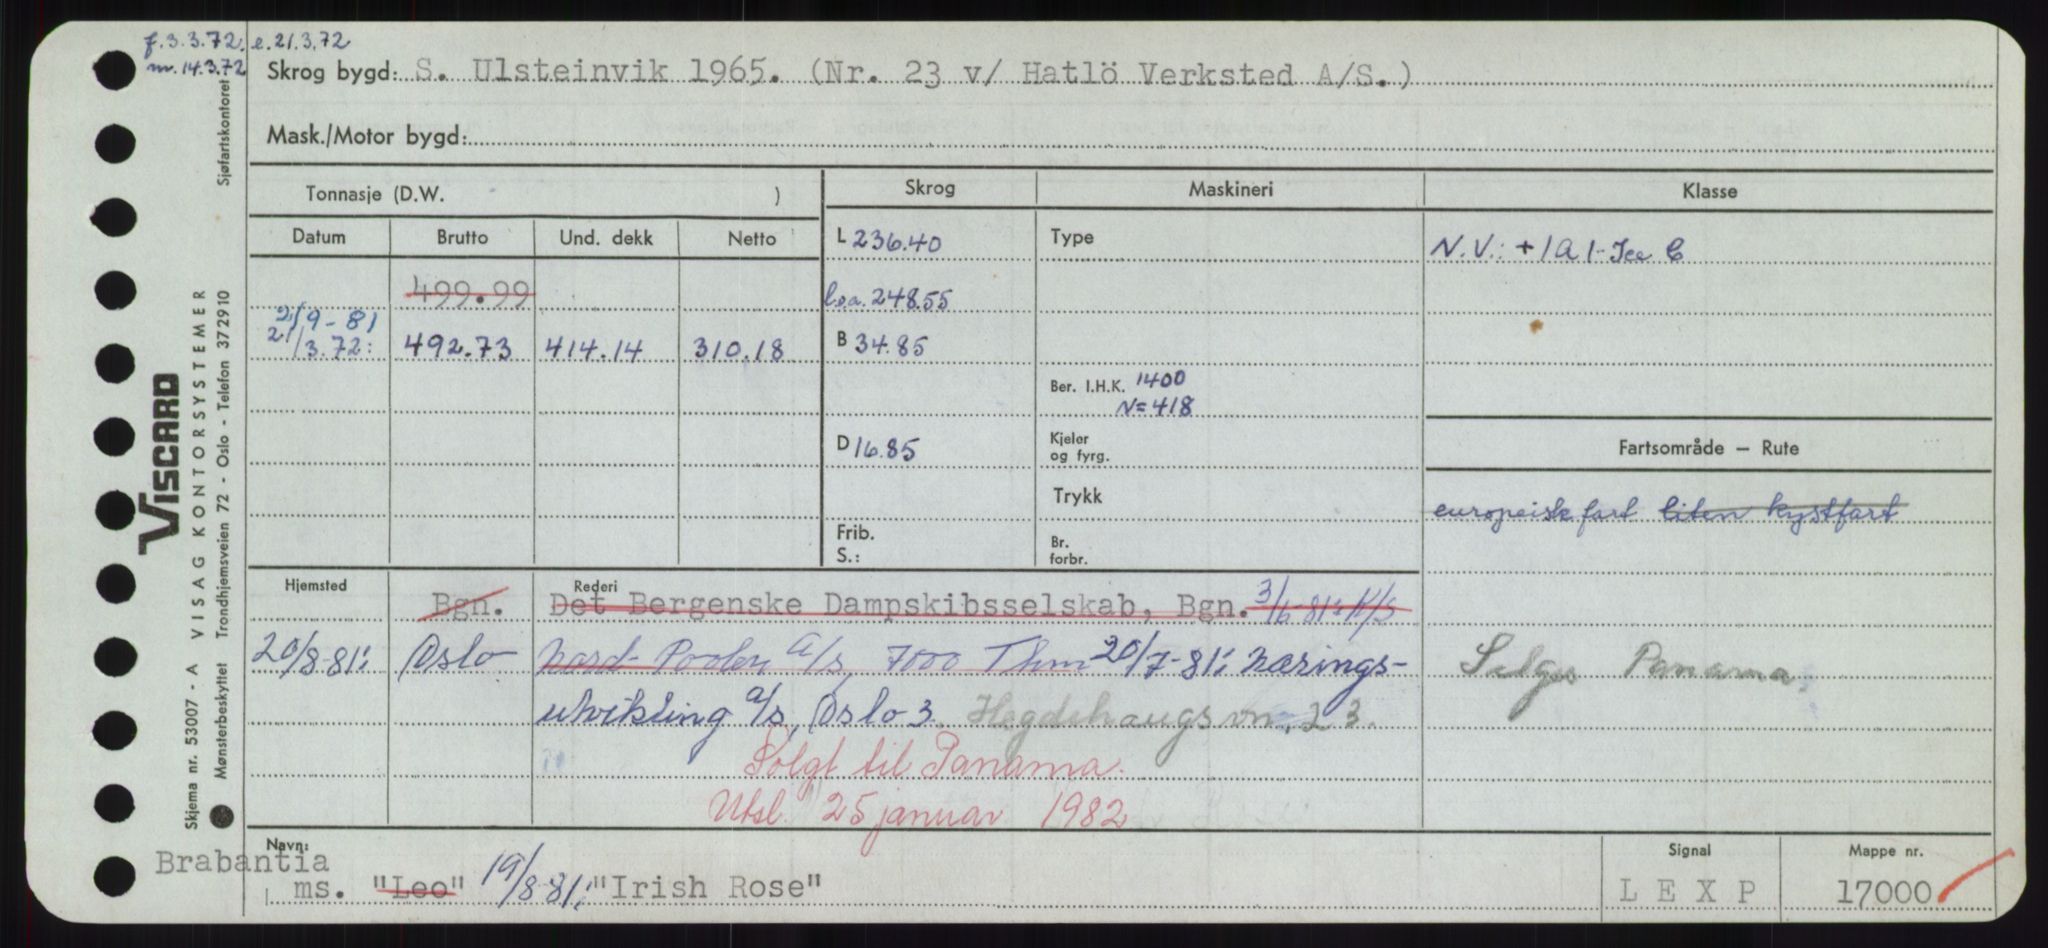 f.3.3.72. e.21.3.72
m.14.3.72
Skrog bygd: S. Ulsteinvik 1965. (Nr. 23 v/ Hatlö Verksted A/S.)
Mask./Motor bygd:
Tonnasje (D.W. ) Skrog Maskineri Klasse
Datum Brutto Und. dekk Netto L 236.40 Type N.V.: +1A1-Ice C
499.99 l.o.a. 248.55
21/9-81
21/3.72: 492.73 414.14 310.18 B 34.85
Ber. I.H.K. 1400
N=418
D 16.85 Kjeler og fyrg. Fartsområde – Rute
Trykk
europeisk fart liten kystfart
Frib.
S.:
Br. forbr.
Hjemsted Rederi
Bgn. Det Bergenske Dampskibsselskab, Bgn. 3/6-81: K/S
20/8-81: Oslo Nord-Poolen A/S, 7000 Thm 20/7-81: Nærings-
utvikling a/s, Oslo 3. Hegdehaugsvn. 23.
Selges Panama.
Solgt til Panama.
Utsl. 25 januar 1982
Navn:
Brabantia
ms. "Leo" 19/8-81: "Irish Rose"
Signal
LEXP
Mappe nr.
17000
VISCARD
VISAG KONTORSYSTEMER
Skjema nr. 53007 - A
Mønsterbeskyttet Trondhjemsveien 72 - Oslo - Telefon 372910
Sjøfartskontoret